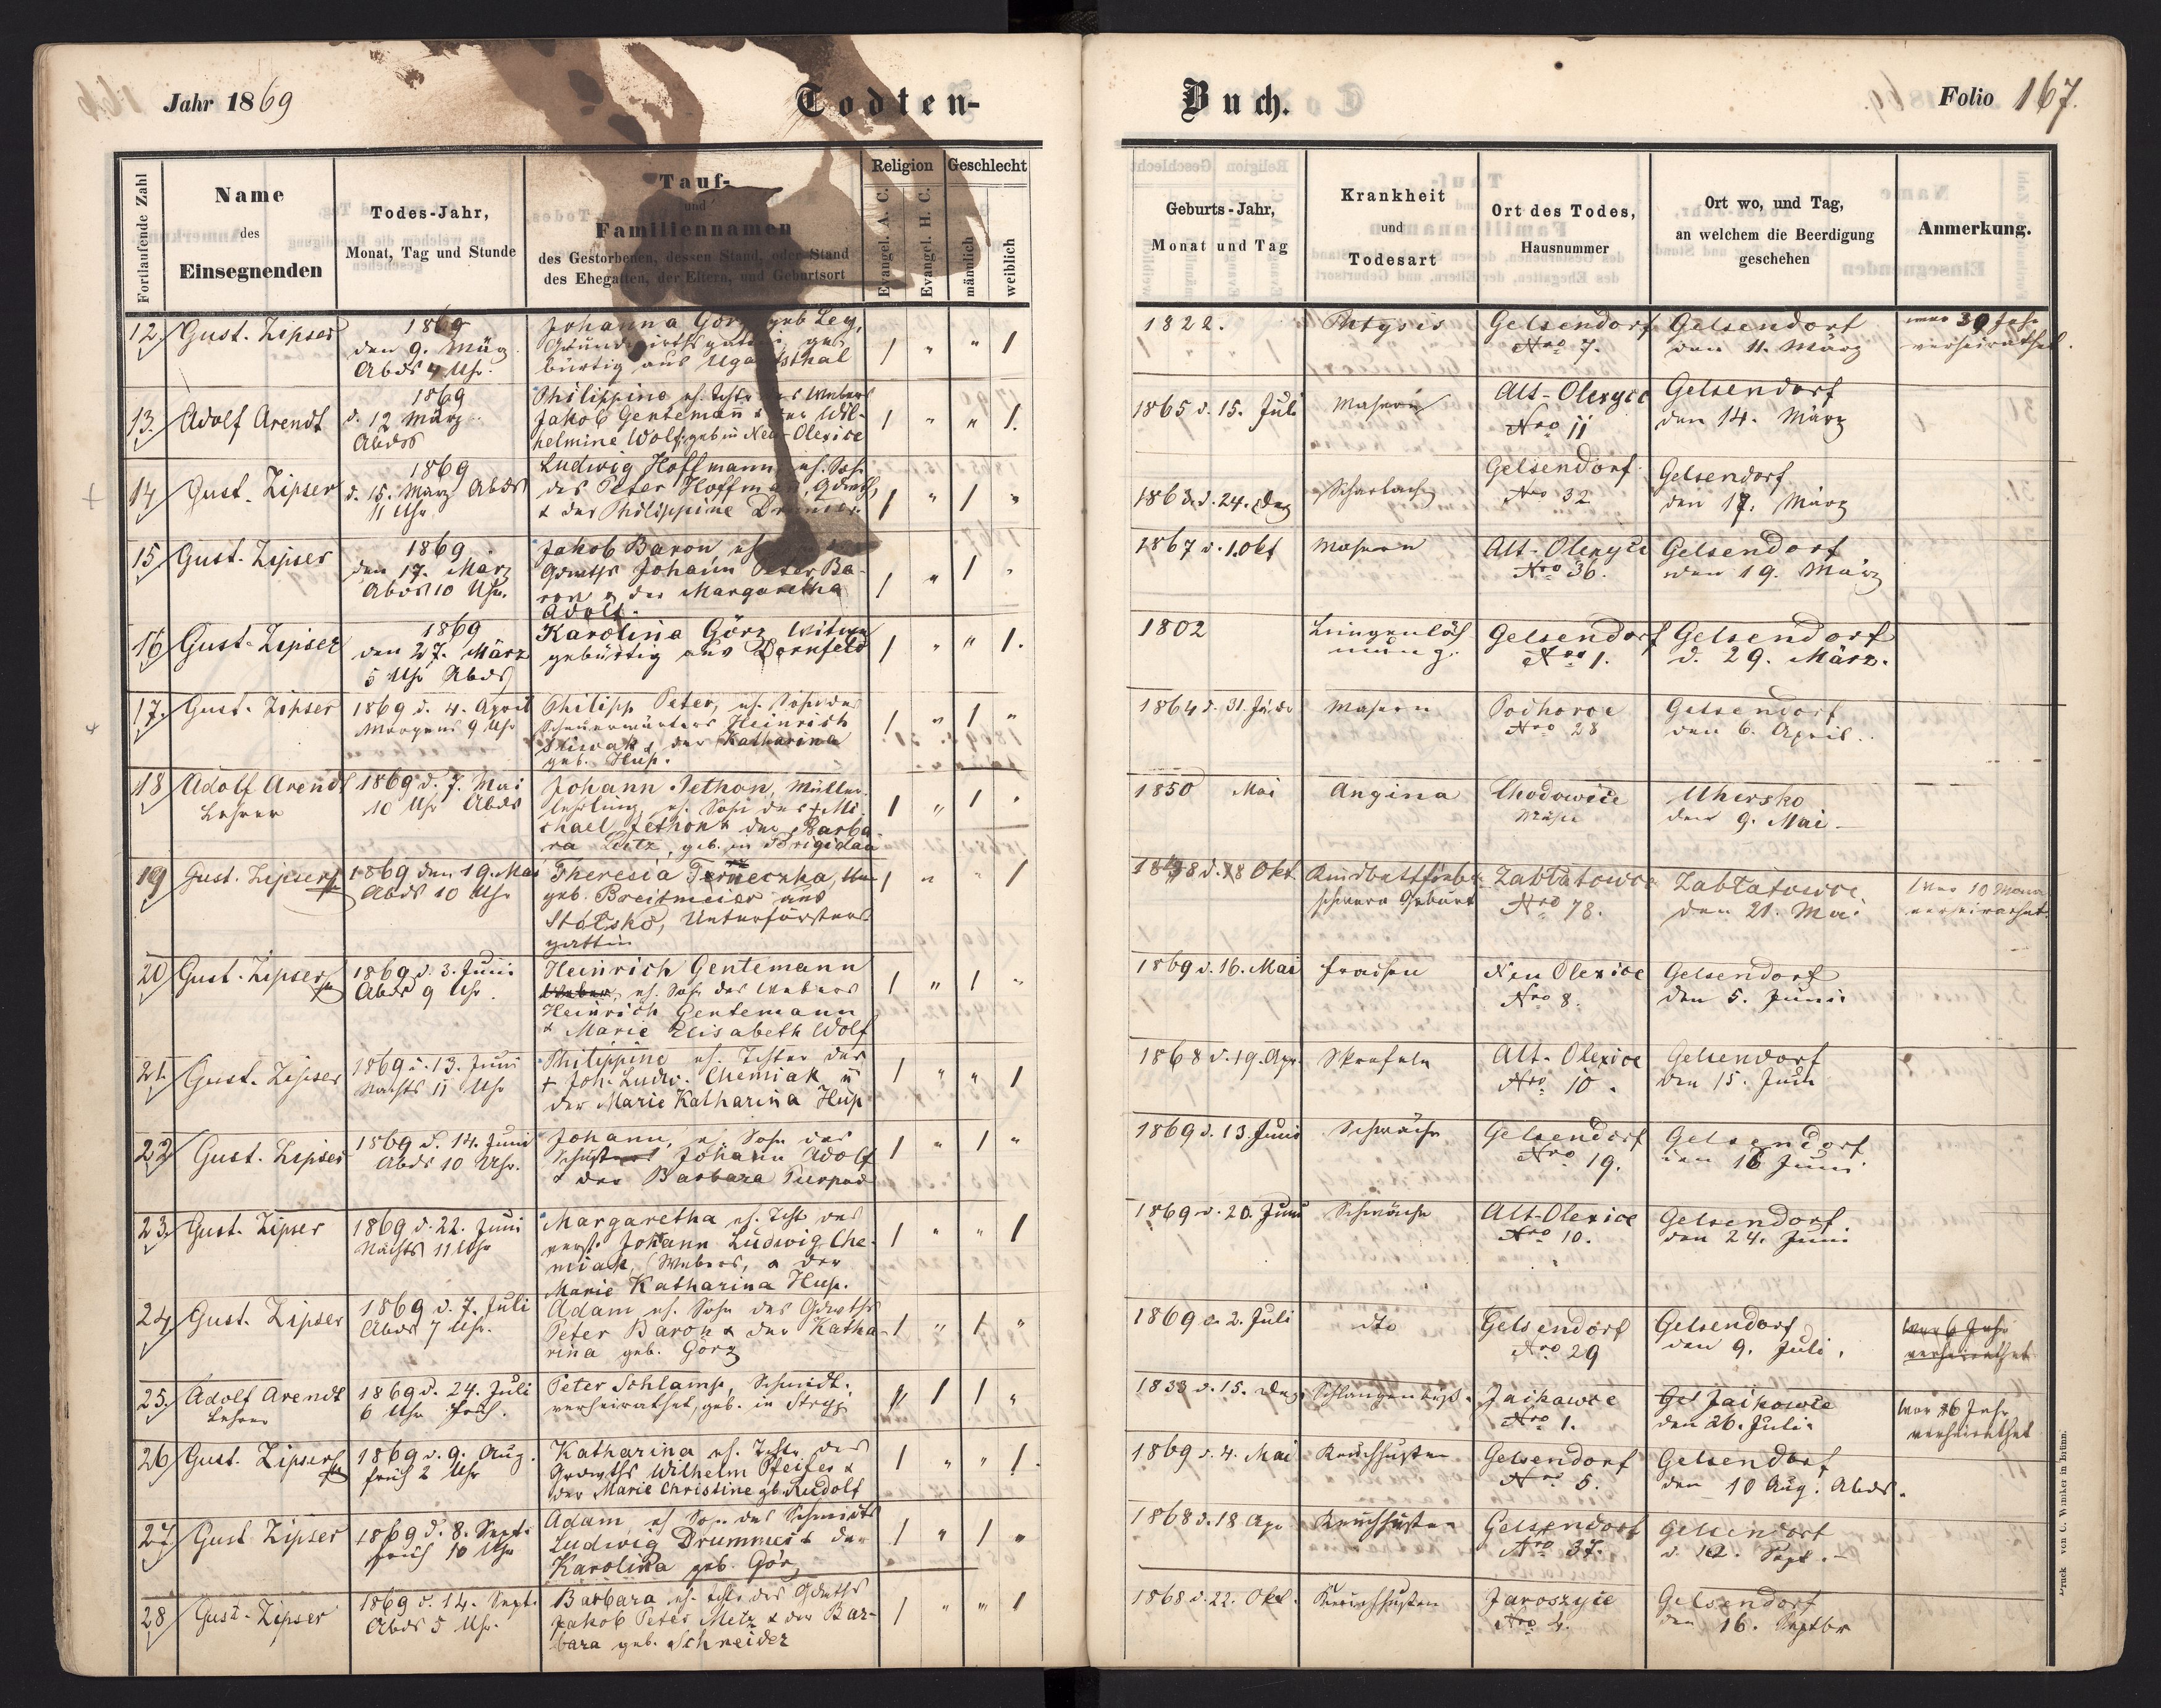 Jahr 1869
Todten-
Buch.
Folio 167.
Fortlaufende Zahl
Name
des
Einsegnenden
Todes-Jahr,
Monat, Tag und Stunde
Tauf-
und
Familiennamen
des Gestorbenen, dessen Stand, oder Stand
des Ehegatten, der Eltern, und Geburtsort
Religion
Evangel. A. C.
Evangel. H. C.
Geschlecht
männlich
weiblich
Geburts-Jahr,
Monat und Tag
Krankheit
und
Todesart
Ort des Todes,
Hausnummer
Ort wo, und Tag,
an welchem die Beerdigung
geschehen
Anmerkung.
12. Gust. Zipser
1869
den 9. März
Abds 4 Uhr.
Johanna Görz geb Ley,
bürtig aus Ugartsthal
1 " " 1
1822.
Phtysis
Gelsendorf
Nro 7.
Gelsendorf
den 11. März
war 30 Jahr
verheirathet.
13. Adolf Arendt
1869
d. 12 März
Abds
Philippine eh. Tochter des Webers
Jakob Gentemann & der Wil-
helmine Wolf geb in Neu-Olexice
1 " " 1.
1865 d. 15. Juli
Masern
Alt-Olexyce
Nro 11
Gelsendorf
den 14. März
14 Gust. Zipser
1869
d. 15. März Abds
11 Uhr
Ludwig Hoffmann, eh. Sohn
des Peter Hoffmann, Gdwths
& der Philippine
1 " 1 "
1863. d. 24. Dez
Scharlach
Gelsendorf
Nro 32
Gelsendorf
den 17. März
15 Gust. Zipser
1869
den 17. März
Abds 10 Uhr.
Jakob Baron eh.
Gdwths Johann Peter Ba-
ron & der Margaretha
Adolf.
1 " 1 "
1867 d. 1. Okt
Masern
Alt-Olexyce
Nro 36.
Gelsendorf
den 19. März
16 Gust. Zipser
1869
den 27. März
5 Uhr Abds
Karolina Görz Witwe
gebürtig aus Dornfeld
1 " " 1.
1802
Lungenläh
mung.
Gelsendorf
Nro 1.
Gelsendorf
d. 29. März.
17. Gust. Zipser
1869 d. 4. April
Morgens 9 Uhr
Philipp Peter, eh. Sohn des
Heinrich
Sliwak & der Katharina
geb. Hup.
1 " 1 "
1864 d. 31.
Masern
Pochorce
Nro 28
Gelsendorf
den 6. April.
18 Adolf Arendt
Lehrer
1869 d. 7. Mai
10 Uhr Abds
Johann Jethon, Müller
lehrling, eh. Sohn des † Mi
chael Jethon & der Barba-
ra Leitz, geb. in Brigidau
1 " 1 "
1850 Mai
Angina
Chodowice
Mühle
Uhersko
den 9. Mai
19 Gust. Zipser
1869 den 19. Mai
Abds 10 Uhr
Theresia
geb. Breitmeier aus
Stolsko, Unterförsters
gattin
1 " " 1
Kindbettfieber
schwere Geburt
Zablatowce
Nro 78.
Zablatowce
den 21. Mai
war 10 Monat
verheirathet.
20 Gust. Zipser
1869 d. 3. Juni
Abds 9 Uhr.
Heinrich Gentemann
Weber, eh. Sohn des Webers
Heinrich Gentemann
& Marie Elisabeth Wolf
1 " 1 "
1869 d. 16. Mai
Fraisen
Neu Olexice
Nro 8.
Gelsendorf
den 5. Juni
21. Gust. Zipser
1869 d. 13. Juni
Nachts 11 Uhr
Philippine eh. Tochter des
† Joh. Ludw. Chemiak u
der Marie Katharina Hup
1 " " 1
1868 d. 19. Apr.
Skrofeln
Alt-Olexice
Nro 10.
Gelsendorf
den 15. Juni
22 Gust. Zipser
1869 d. 14. Juni
Abds 10 Uhr.
Johann, eh. Sohn des
Johann Adolf
& der Barbara
1 " 1 "
1869 d. 13. Juni
Schwäche
Gelsendorf
Nro 19.
Gelsendorf
den 16 Juni
23. Gust. Zipser
1869 d. 22. Juni
Nachts 11 Uhr
Margaretha eh. Tocht des
verst. Johann Ludwig Che-
miak, Webers, & der
Marie Katharina Hup.
1 " " 1
1869 d. 20. Juni
Schwäche
Alt-Olexice
Nro 10.
Gelsendorf.
den 24. Juni
24. Gust. Zipser
1869 d. 7. Juli
Abds 7 Uhr.
Adam eh. Sohn des Gdwths
Peter Baron & der Katha-
rina geb. Görz
1 " 1 "
1869 d. 2. Juli
dto
Gelsendorf
Nro 29
Gelsendorf
den 9. Juli.
war 6 Jahr
verheirathet
25. Adolf Arendt
Lehrer
1869 d. 24. Juli
6 Uhr früh.
Peter Schlamp, Schmidt,
verheirathet, geb. in Stryj
1 1 "
1833 d. 15. Dez.
Schlangenbiß.
Jaikawce
Nro 1.
Gel Jaikowce
den 26. Juli.
war 6 Jahr
verheirathet
26 Gust. Zipser
1869 d. 9. Aug.
früh 2 Uhr
Katharina eh. Tochter des
Grdwths Wilhelm Pfeifer &
der Marie Christine gb. Rudolf
1 " " 1.
1869 d. 4. Mai
Keuchhusten
Gelsendorf
Nro 5.
Gelsendorf
den 10 Aug. Abds.
27 Gust Zipser
1869 d. 8. Sept.
früh 10 Uhr
Adam eh Sohn des Schmidts
Ludwig Drummer & der
Karolina geb. Görz
1 " 1 "
1868 d. 18 Apr
Keuchhusten
Gelsendorf
Nro 37.
Gelsendorf
d. 10. Sept.
28 Gust. Zipser
1869 d. 14. Sept.
Abds 5 Uhr.
Barbara eh. Tochter des Gdwths
Jakob Peter Metz & der Bar-
bara geb. Schneider
1 " " 1
1868 d. 22. Okt.
Keuchhusten
Jaroszyce
Nro 4.
Gelsendorf
den 16. Septbr
Druck von C. Winiker in Brünn.